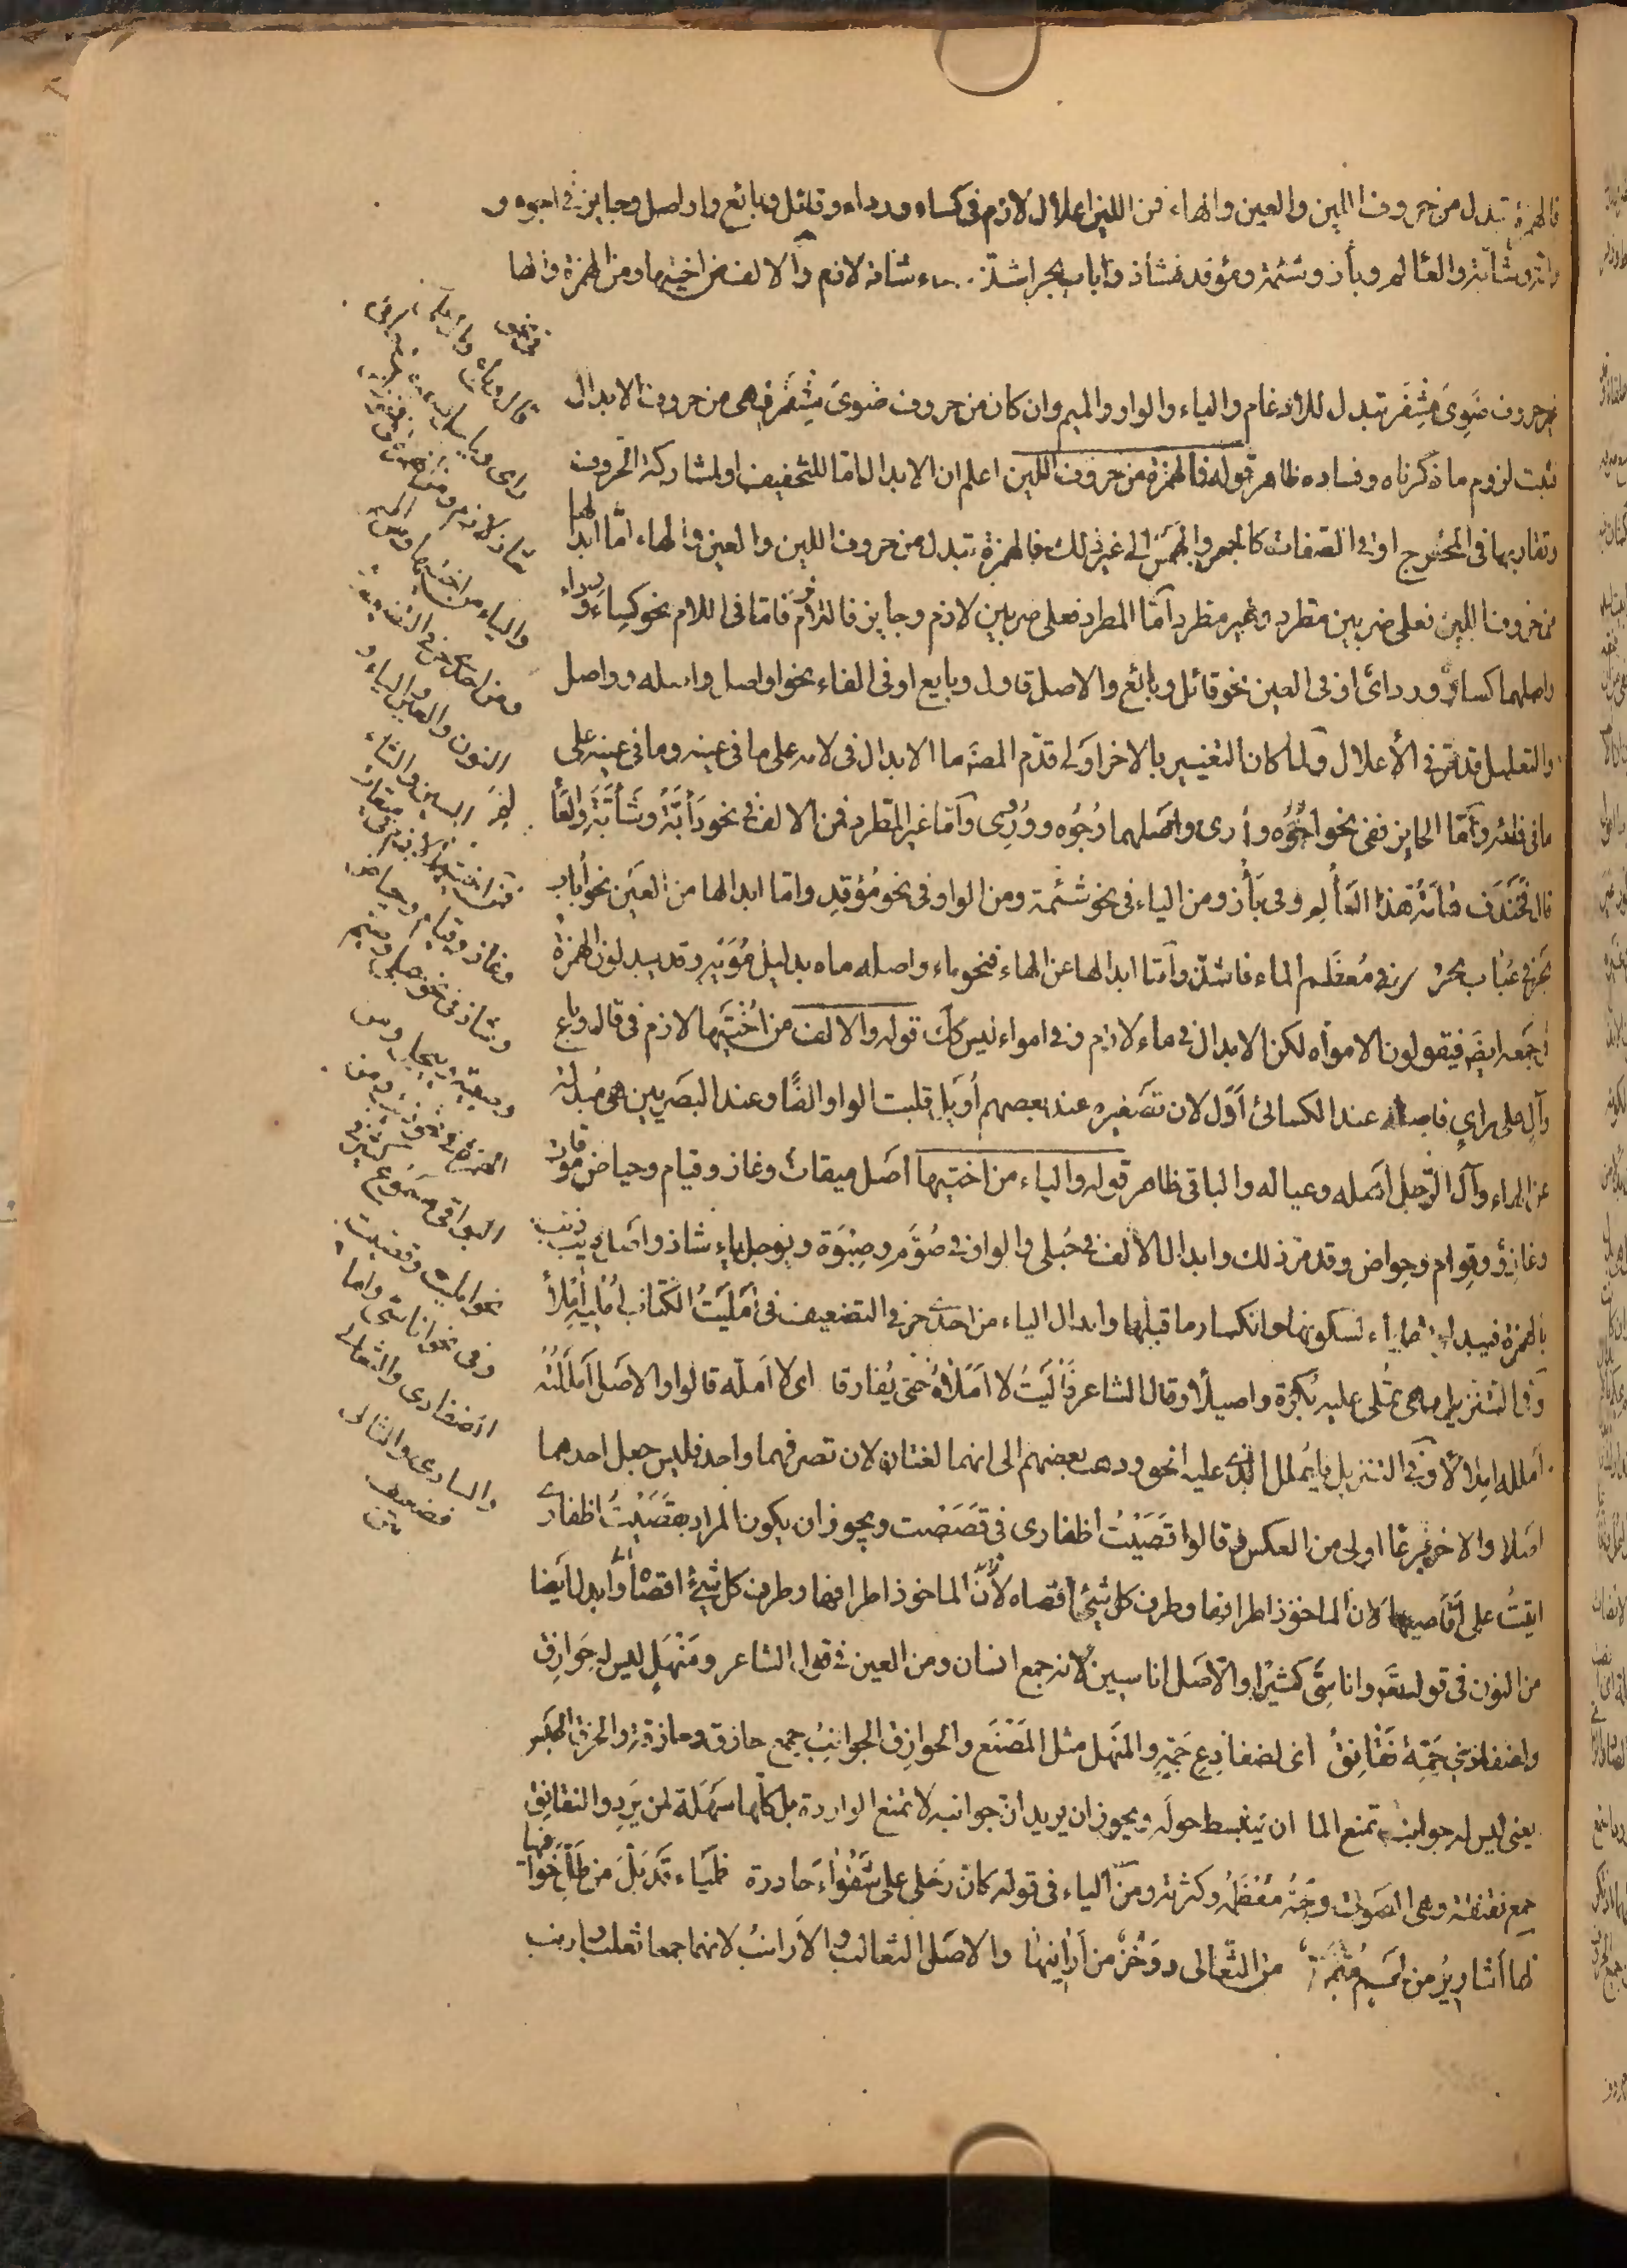 فالهمزة تبدل من حروف اللين والعين والهاء فمن اللين اعلال لازم فى كساء ورداء وقائل وبائع واواصل وجايز فى اجوه و
دأبة وشأبة والعألم وبأز وشئمة ومؤقد فشاذ واباب بحر اشذ وماء شاذ لازم والالف من اختيها ومن الهمزة والها
حروف ضَوِىَ مِشْفَر تبدل للادغام والياء والواو والميم وان كان من حروف ضوى مشفر فهى من حروف الابدال
ثبت لزوم ما ذكرناه وفساده ظاهر قوله فالهمزة من حروف اللين اعلم ان الابدال اما للتخفيف او لمشاركة الحروف
وتقاربها فى المخرج او فى الصفات كالجهر والهمس الى غير ذلك فالهمزة تبدل من حروف اللين والعين والهاء امّا ابدالها
من حروف اللين فعلى ضربين مطرد وغير مطرد امّا المطرد فعلى ضربين لازم وجايز فاللازم امّا فى اللام نحو كِساء ورداء
واصلهما كساو وردائ او فى العين نحو قائل وبائع والاصل قاول وبايع او فى الفاء نحو اواصل واصله وواصل
والتعليل قد مرّ فى الأعلال ولما كان التغيير بالاخر اولى قدّم المصنّ ما الابدال فى لامه على ما فى عينه وما فى عينه على
ما فى فائه وامّا الجايز ففى نحو اجُوه وأُرى واصلهما وُجُوه ووُرِى وامّا غير المطرد فمن الالف فى نحو دَأبّة وشَأبّة والعَأ
قال فخندف هامة هذا العَألَم وفى بَأْز ومن الياء فى نحو شئمة ومن الواو فى نحو مُؤقد وامّا ابدالها من العين نحو أباب
بحر فى عُباب بحر وهو مُعظَم الماء فاشذّ وامّا ابدالها عن الهاء فنحو ماء واصله ماه بدليل مُوَيه وقد يبدلون الهمزة
فى جمعه ايضَ فيقولون الامواء لكن الابدال فى ماء لازم وفى امواء ليس كك قوله والالف من اُختيها لازم فى قال وباع
وآل على راىٍ فاصله عند الكسائى أوَل لان تصغيره عند بعضهم أُويل قلبت الواو الفًا وعند البصريين هى مُبدلة
عن الهاء وآل الرجل اهله وعياله والباقى ظاهر قوله والياء من اختيها اصل ميقات وغاز وقيام وحياض موقات
وغازِوٌ وقِوام وحِواض وقد مرّ ذلك وابدال الالف فى حُبلى والواو فى صُوّم وصِبوَة ويَوجل ياء شاذ واصل ذيب ذئب
بالهمزة فيبدلونها ياء لسكونها وانكسار ما قبلها وابدال الياء من احد حرفى التضعيف فى أمليتُ الكتاب اُمليه املأً
وفى التنزيل فهى تُملى عليه بُكرة واصيلاً وقال الشاعر فآليتُ لا املاهُ حتى يُفارقا اى لا اَمَلّه قالوا والاصل اَمللتُه
اُملله املالاً وفى التنزيل فليُملل الذى عليه الحق وذهب بعضهم الى انهما لغتان لان تصرفهما واحد فليس جعل احدهما
اصلا والاخر فرعًا اولى من العكس وقالوا قَصَّيتُ اظفارى فى قَصَصت ويجوز ان يكون المراد بقصَّيتُ اظفارى
اتيتُ على اَقاصيها لان الماخوذ اطرافها وطرف كل شئ أقصاه لأنّ الماخوذ اطرافها وطرف كل شئ اقصاه وابدل ايضا
من النون فى قوله تعَ واناسِىَّ كثيرًا والاصل اناسين لانه جمع انسان ومن العين فى قول الشاعر ومَنْهَلٍ ليس له حَوازِق
ولضفادى جَمّه نَقَانِقُ اى لضفادع جَمّه والمنهل مثل المَصْنَع والحوازِق الجوانب جمع حازق وحازقة والحزق الحبس
يعنى ليس له جوانب تمنع الما ان ينبسط حوله ويجوز ان يريد انّ جوانبه لا تمنع الواردة بل كلّها سَهلة لمن يَرِد والنقانق
جمع نقنقة وهى الصوت وجَمّه مُعْظَمُه وكثرته ومن الياء فى قوله كانّ رَحلى على شَغْواءَ حادرة ظَمياء قد بُلّ من طلٍّ خَوافيها
لها أشاريرُ من لحمٍ تُتَمّره من الثعالى ووَخْزٌ من أرانيها والاصل الثعالب والارانبُ لانهما جمعا ثعلب وارنب
والياء من اختيها ومن
ومن احد حرفى التضعيف و
النون والعين والباء و
السين والثاء
وغاز وقيام وحياض
وشاذ فى نحو حبلى وصيم
وصبية وييجل ومن
الهمزة فى نحو ذيب ومن
البواقى مسموع كثير فى
نحو امليت وقصيت
وفى نحو اناسىّ واما
الضفادى والثعالى
والسادى والثالى
فضعيف